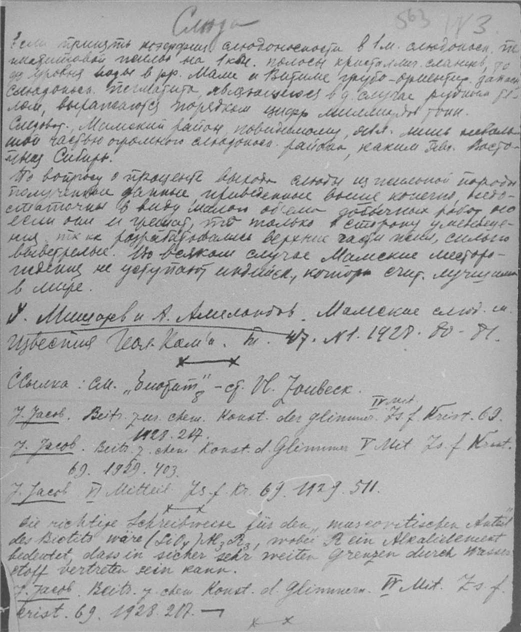 Слюда 563 № 3.
Если принять коэффиц. слюдоносности в 1 м. слюдонос.
пегматитовой жилы на 1 кв. полосы кристаллич. сланцев, то
до уровня воды в рр. Маме и Витиме грубо-ориентир. данн.
слюдонос. пегматита, являющегося в д. случае рудным те-
лом, выражаются порядком цифр миллиардов тонн.
Следоват., Мамский район, повидимому, явл. лишь неболь-
шой частью огромного слюдоносн. района, каким явл. Восто-
чная Сибирь.
По вопросу о проценте выхода слюды из жильной породы
полученные данные приведенные выше конечно недо-
статочны в виду малого объема добычных работ, но
если они и грешат, то только в сторону уменьше-
ния, т.к. разрабатывались верхние части жил, сильно
выветрелые. Во всяком случае Мамские месторо-
ждения не уступают индийск., которые счит. лучшими
в мире.
Мишарев и А. Амеландов. Мамские слюд. м.
Известия Геол. Ком'а. т. 47. №1. 1928. 80-81.
Ссылка: см. „Биотит" - ст.
IV mit.
J. Jacob. Beitr. zur chem. Konst. der Glimmer. Zs f Krist. 69.
1928. 217.
J. Jacob. Beitr. z. chem. Konst. d. Glimmer V Mit. Zs. f. Krist.
69. 1929. 403.
J. Jacob VI Mitteil Zs f. Kr. 69. 1929. 511.
Die richtige Schreibweise für den „muscovitischen Anteil"
des Biotits wäre (SiO4)Al3R3, wobei R ein Alkalielement
bedeutet, dass in sicher sehr weiten Grenzen durch Wasser-
stoff vertreten sein kann.
J. Jacob. Beitr. z. chem. Konst. d. Glimmern. IV Mit. Zs f.
Krist. 69. 1928. 217.